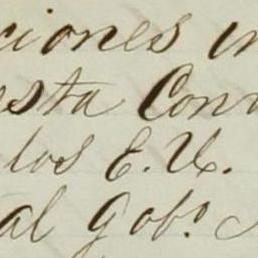 ciones in
esta Con
los E. U.
al Gob.º